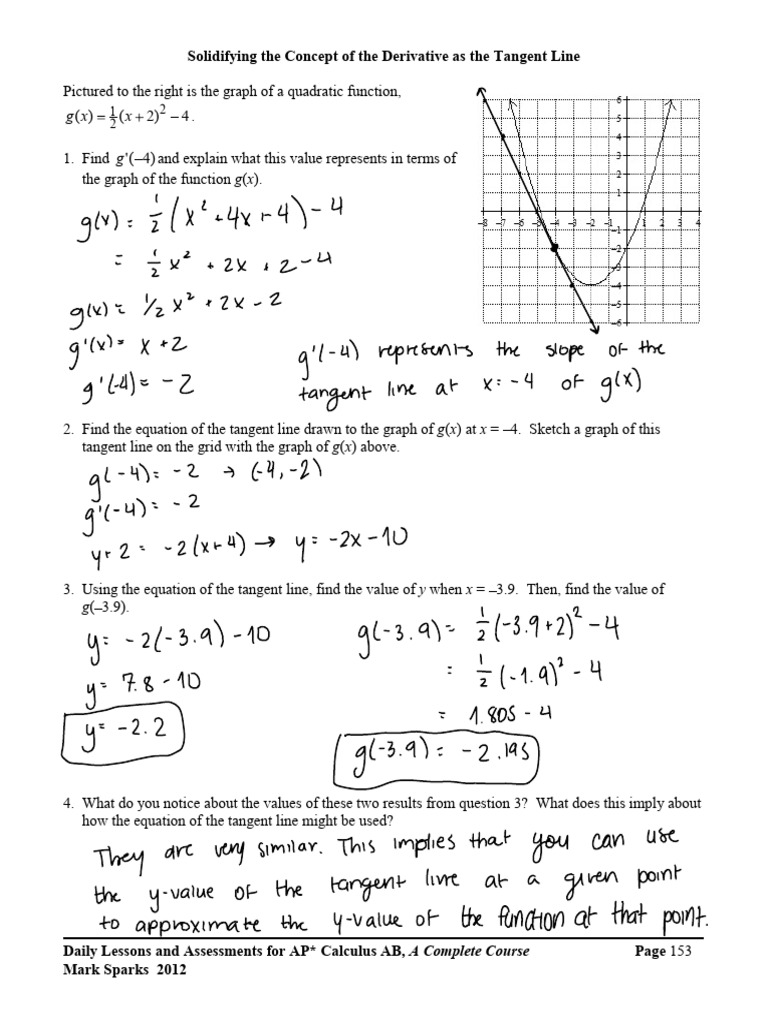 Solidifying the Concept of the Derivative as the Tangent Line
Pictured to the right is the graph of a quadratic function,
g(x) = ½(x + 2)² − 4.
6
5
4
3
2
1
−8 −7 −6 −5 −4 −3 −2 −1 1 2 3 4
−1
−2
−3
−4
−5
−6
1. Find g'(−4) and explain what this value represents in terms of
the graph of the function g(x).
g(x) = ½(x² + 4x + 4) − 4
= ½x² + 2x + 2 − 4
g(x) = ½x² + 2x − 2
g'(x) = x + 2
g'(-4) = − 2
g'(-4) represents the slope of the
tangent line at x = -4 of g(x)
2. Find the equation of the tangent line drawn to the graph of g(x) at x = −4. Sketch a graph of this
tangent line on the grid with the graph of g(x) above.
g(-4) = -2 → (-4, -2)
g'(-4) = -2
y + 2 = -2(x + 4) → y = -2x - 10
3. Using the equation of the tangent line, find the value of y when x = −3.9. Then, find the value of
g(−3.9).
y = -2(-3.9) - 10
y = 7.8 - 10
y = -2.2
g(-3.9) = ½(-3.9+2)² - 4
= ½(-1.9)² - 4
= 1.805 - 4
g(-3.9) = -2.195
4. What do you notice about the values of these two results from question 3? What does this imply about
how the equation of the tangent line might be used?
They are very similar. This implies that you can use
the y-value of the tangent line at a given point
to approximate the y-value of the function at that point.
Daily Lessons and Assessments for AP* Calculus AB, A Complete Course Page 153
Mark Sparks 2012